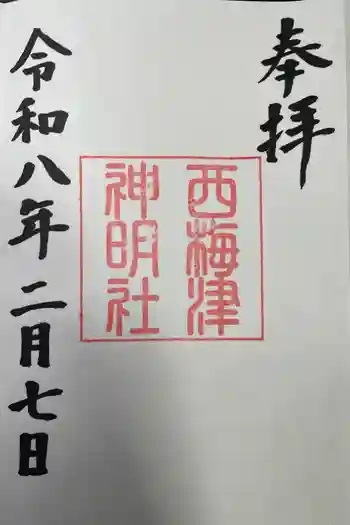 奉拝
西梅津
神明社
令和八年二月七日